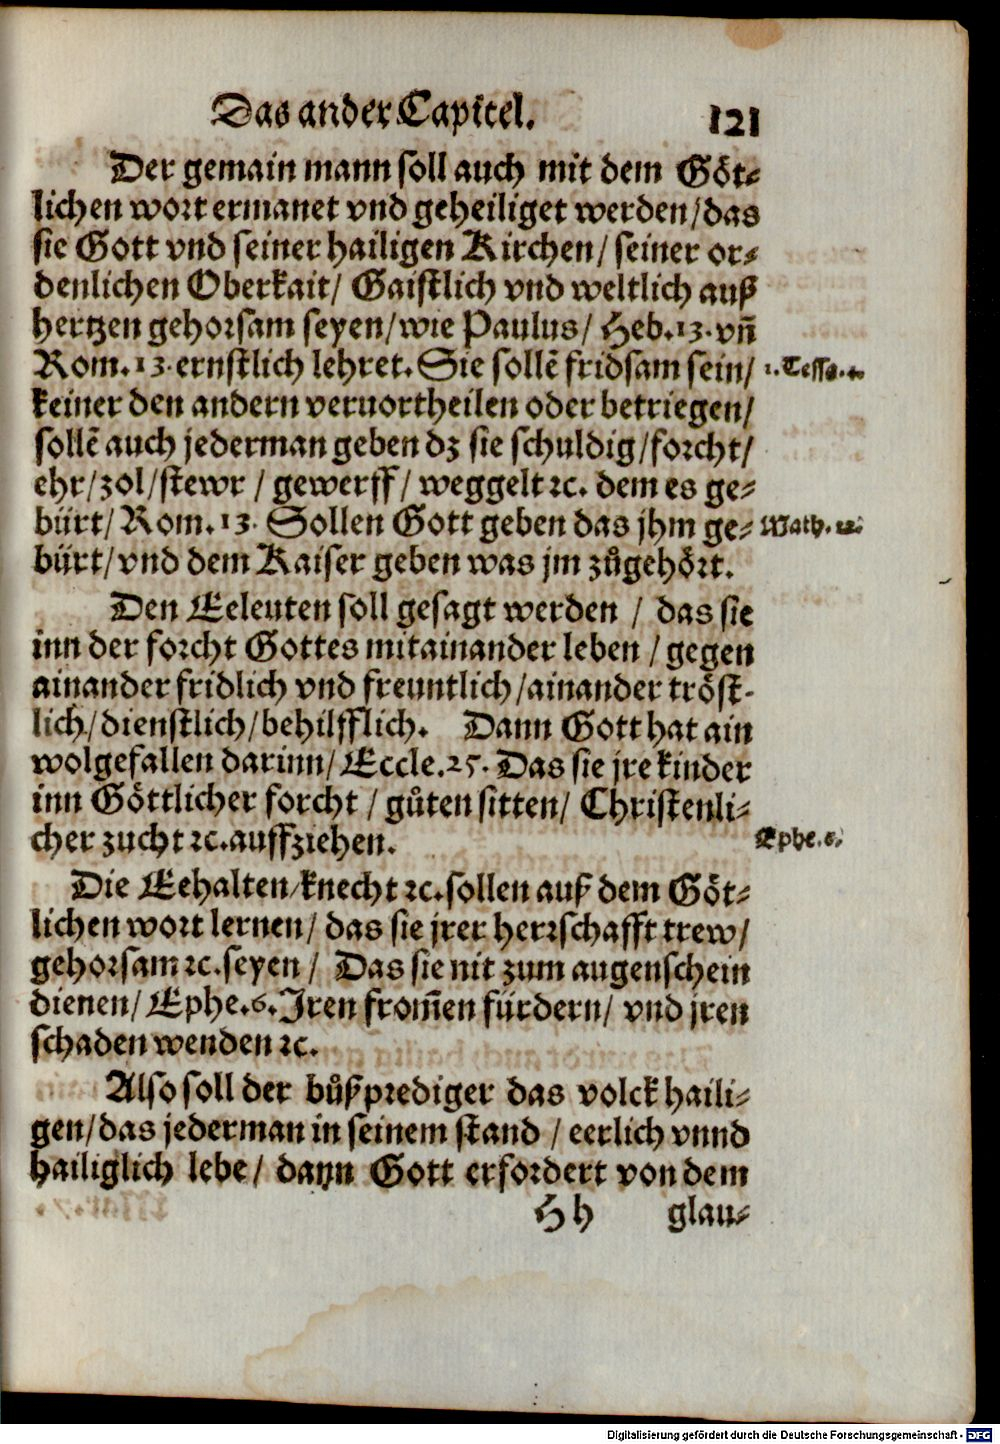 Das ander Capitel. 121
Der gemain mann soll auch mit dem Göt⸗
lichen wort ermanet vnd geheiliget werden/das
sie Gott vnd seiner hailigen Kirchen/ seiner or⸗
denlichen Oberkait/ Gaistlich vnd weltlich auß
hertzen gehorsam seyen/wie Paulus/ Heb.13.vñ
Rom.13.ernstlich lehret. Sie sollẽ fridsam sein/ 1.Tessa.4.
keiner den andern veruortheilen oder betriegen/
sollẽ auch jederman geben dz sie schuldig/forcht/
ehr/zol/stewr/gewerff/weggelt ꝛc. dem es ge⸗
bürt/Rom.13. Sollen Gott geben das jhm ge⸗ Math. 22.
bürt/vnd dem Kaiser geben was jm zůgehört.
Den Eeleuten soll gesagt werden / das sie
inn der forcht Gottes mitainander leben / gegen
ainander fridlich vnd freuntlich/ainander tröst-
lich/dienstlich/behilfflich. Dann Gott hat ain
wolgefallen darinn/Eccle.25. Das sie jre kinder
inn Göttlicher forcht / gůten sitten/ Christenli⸗
cher zucht ꝛc.auffziehen. Ephe.6.
Die Eehalten/knecht ꝛc.sollen auß dem Göt⸗
lichen wort lernen/ das sie jrer herrschafft trew/
gehorsam ꝛc.seyen/ Das sie nit zum augenschein
dienen/ Ephe.6.Iren from̃en fürdern/ vnd jren
schaden wenden ꝛc.
Also soll der bůßprediger das volck haili⸗
gen/das jederman in seinem stand / eerlich vnnd
hailiglich lebe/ dann Gott erfordert von dem
Hh glau⸗
Digitalisierung gefördert durch die Deutsche Forschungsgemeinschaft - DFG